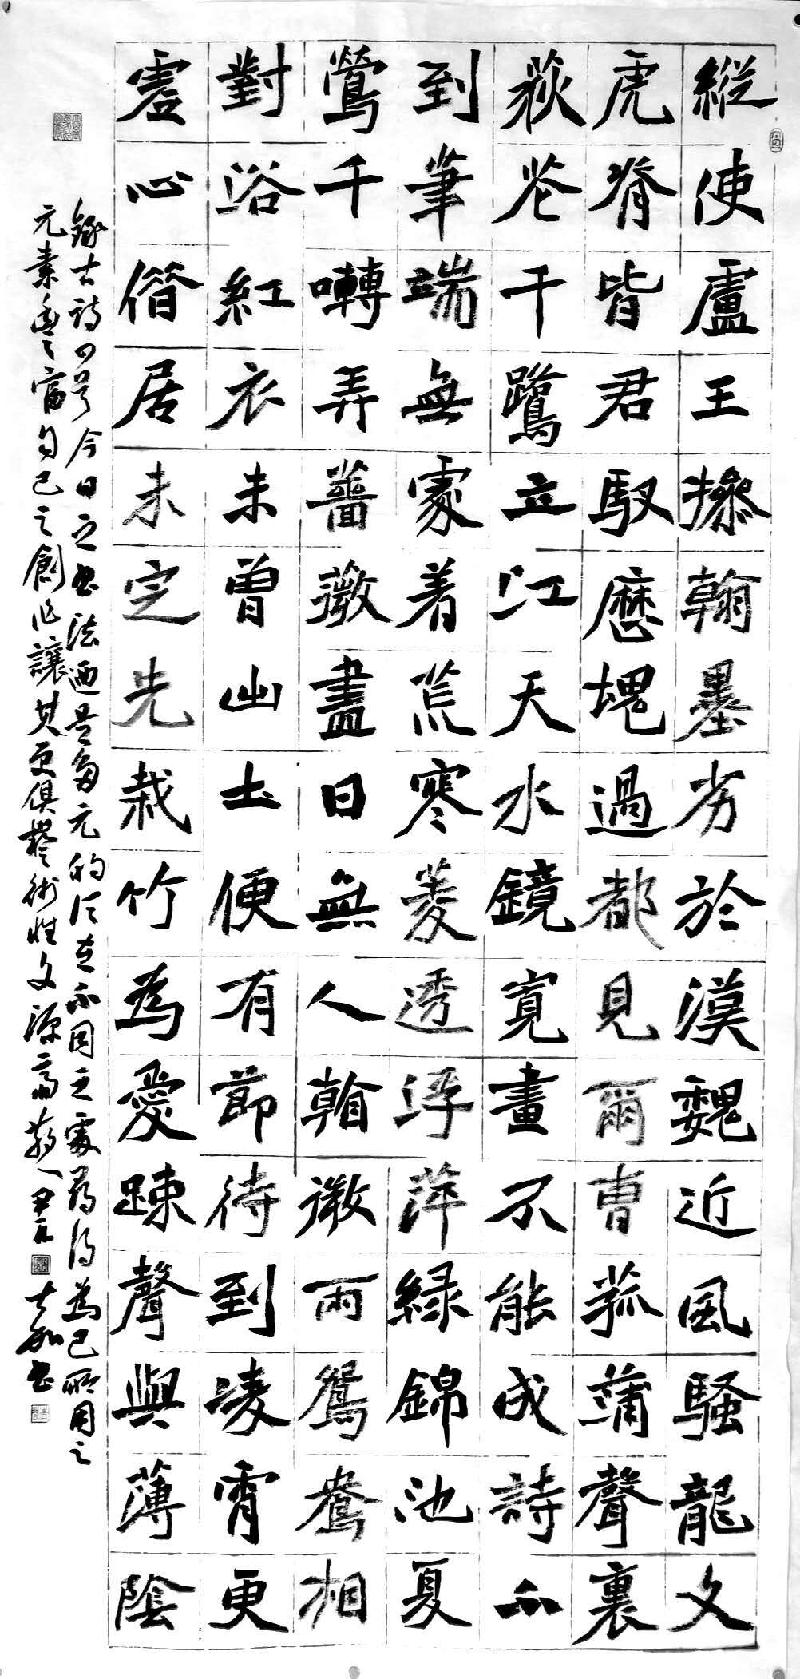 縱使盧王操翰墨劣於漢魏近風騷龍文
虎脊皆君馭歷塊過都見爾曹菰蒲聲裏
荻花千鷺立江天水鏡寬畫不能成詩不
到筆端無處着荒寒菱透浮萍綠錦池夏
鶯千囀弄薔薇盡日無人看微雨鴛鴦相
對浴紅衣未曾出土便有節待到凌霄更
虛心借居未定先栽竹為愛疎聲與薄陰
錄古詩四首今日之書法迺是多元的不同之處為己所用之
元素豐富自己之創作讓其更俱藝術性文源齋書